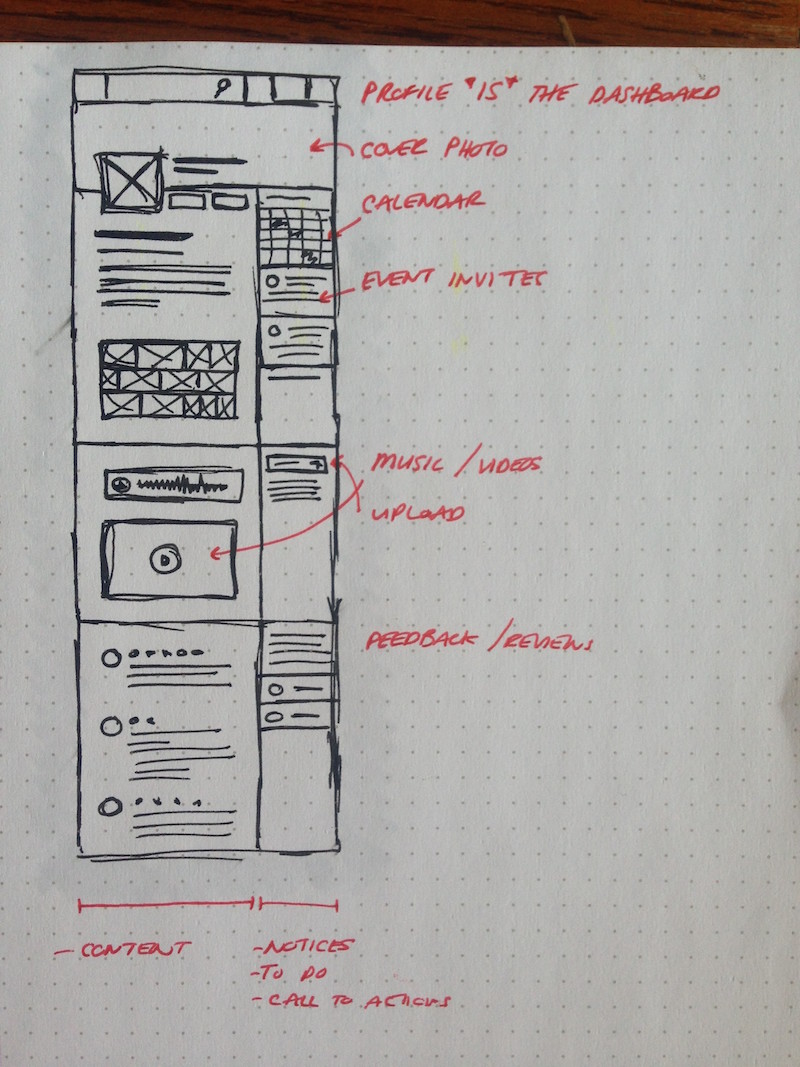 PROFILE *IS* THE DASHBOARD
COVER PHOTO
CALENDAR
EVENT INVITES
MUSIC / VIDEOS
UPLOAD
FEEDBACK / REVIEWS
- CONTENT
- NOTICES
- TO DO
- CALL TO ACTIONS